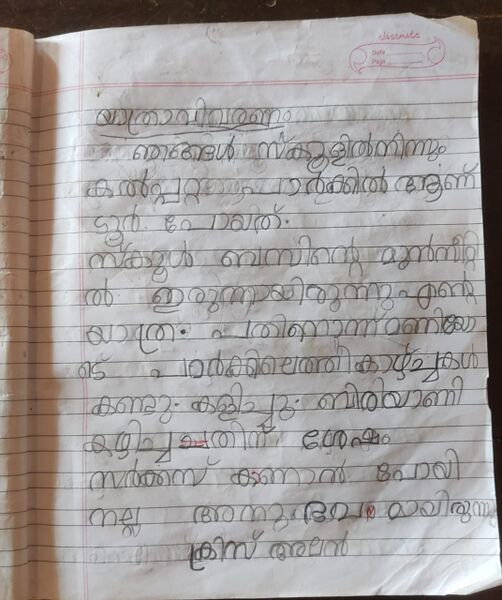 classmate
Date
Page
യാത്രാവിവരണം
ഞങ്ങൾ സ്ക്കൂളിൽനിന്നും
കൽപ്പറ്റ പാർക്കിൽ ആണ്
ടൂർ പോയത്.
സ്ക്കൂൾ ബസ്സിന്റെ മുൻസീറ്റി
ൽ ഇരുന്നായിരുന്നു എന്റെ
യാത്ര. പതിനൊന്ന് മണിയോ
ടെ പാർക്കിലെത്തി കാഴ്ച്ചകൾ
കണ്ടു. കളിച്ചു. ബിരിയാണി
കഴിച്ചതിന് ശേഷം
സർക്കസ് കാണാൻ പോയി
നല്ല മായിരുന്നു
ക്രിസ് അലൻ